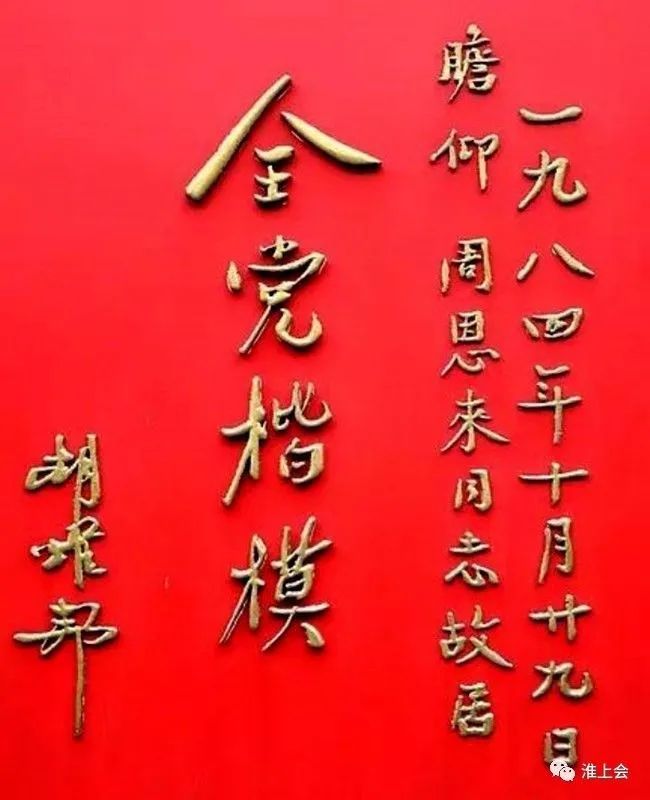 一九八四年十月廿九日
瞻仰 周恩来同志故居
全党楷模
胡耀邦
淮上会